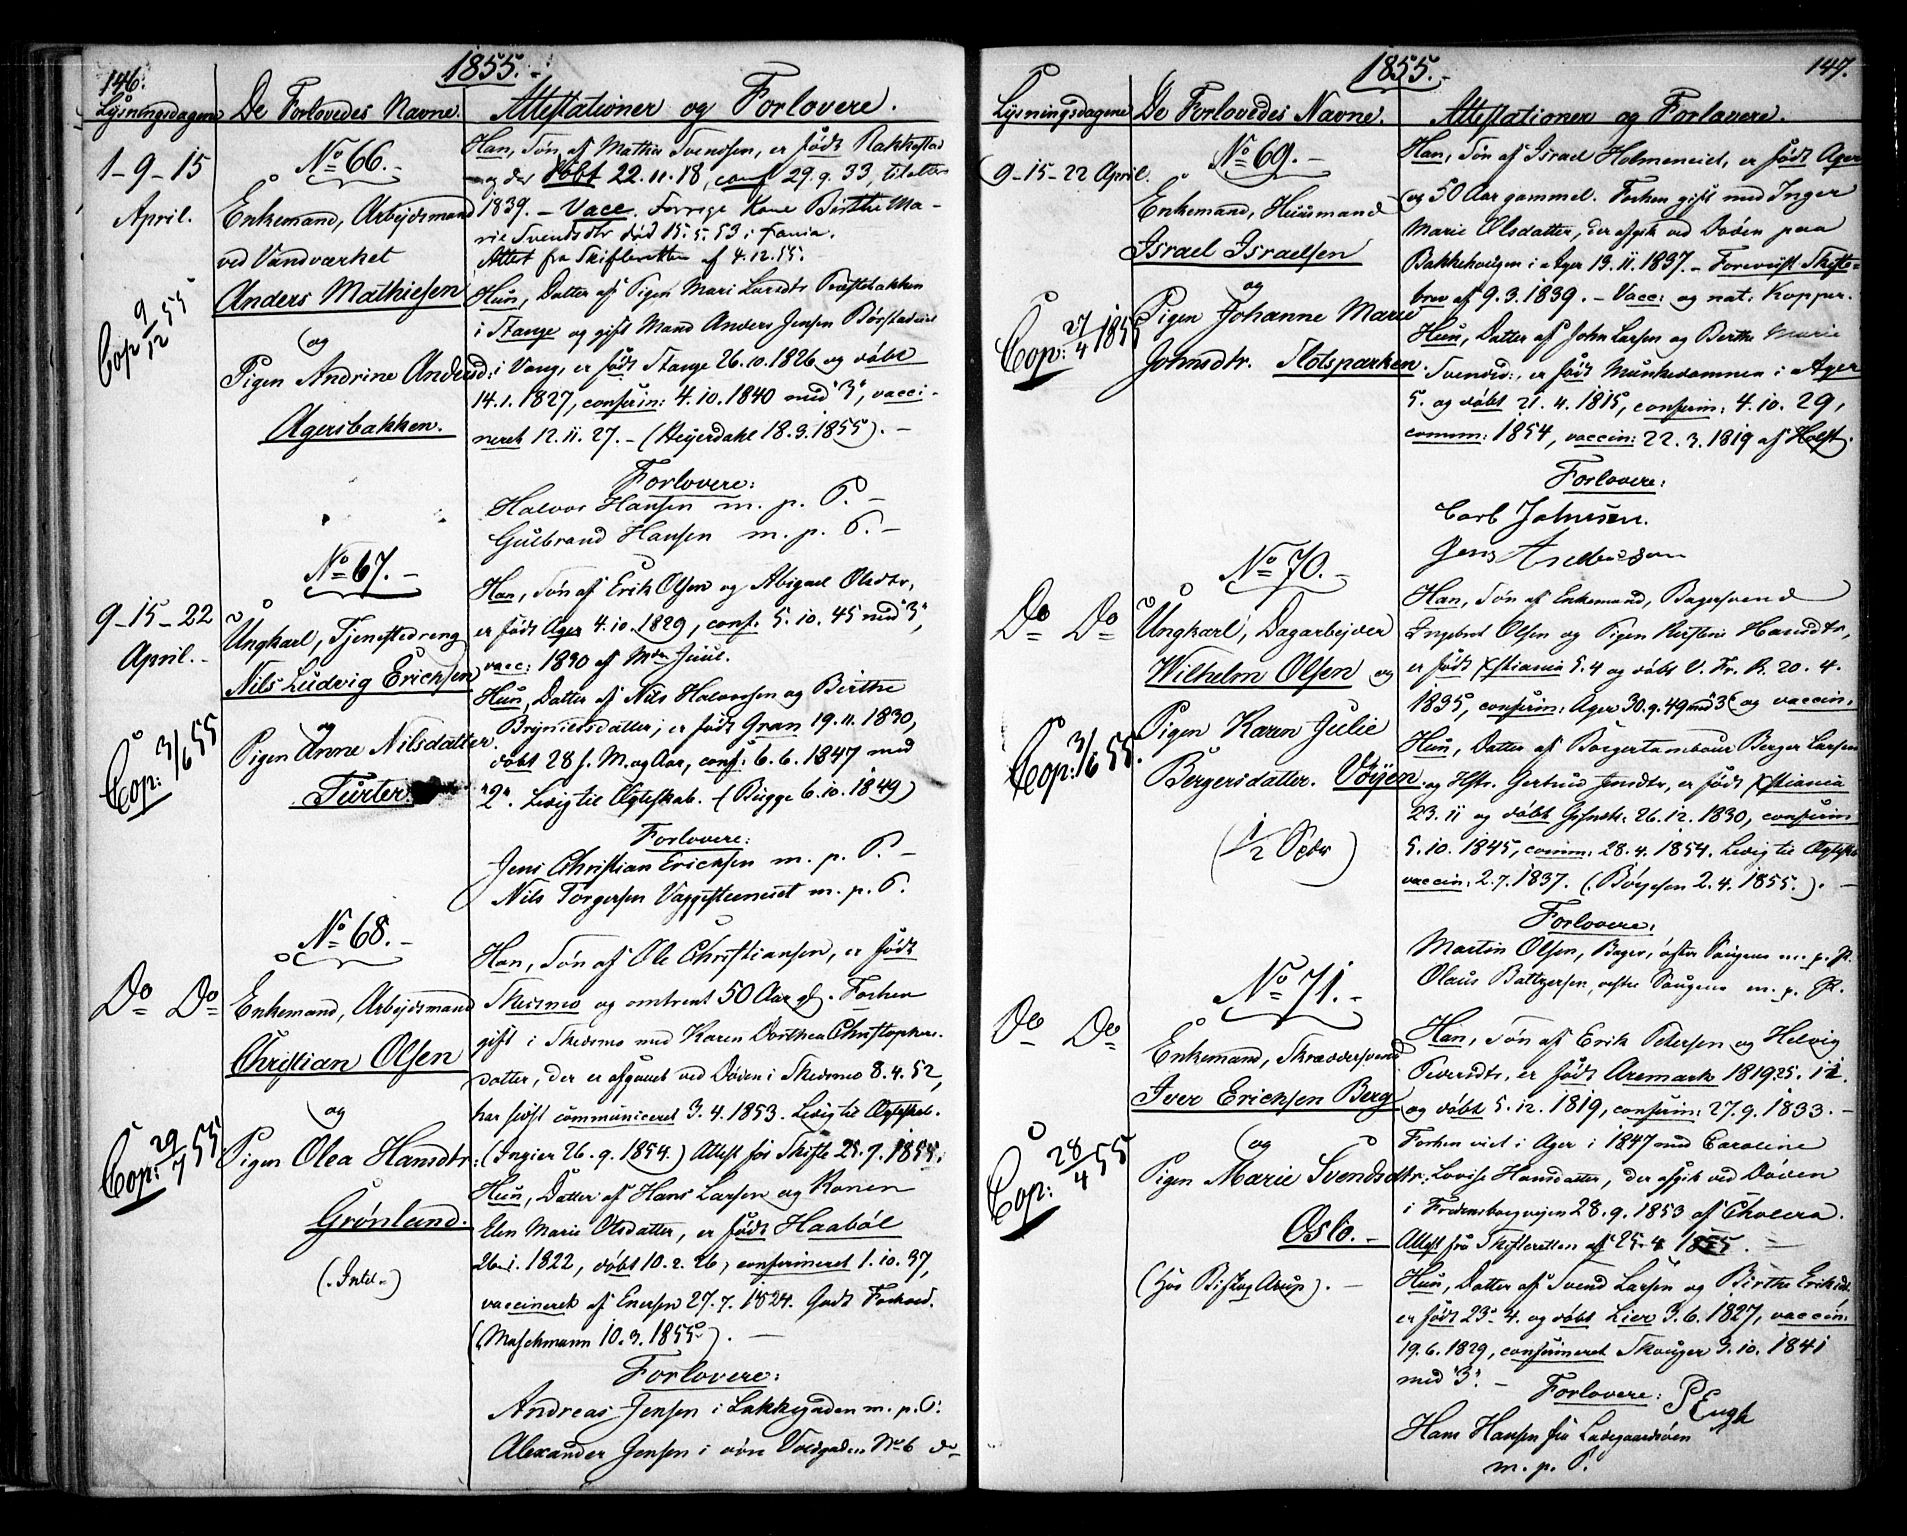 146.
1855.
Lysningsdagene De Forlovedes Navne. Attestationer og Forlovere.
1-9-15
April.
No 66.
Enkemand, Arbeidsmand
ved Vandværket
Anders Mathiesen
og
Pigen Andrine Andersd:
Agersbakken.
Cop 9/12 55
Han, Søn af Mathis Svendsen, er født Rakkestad
og der døbt 22.11.18, conf 29.9.33,
1839. - Vacc. Forrige Kone Birthe Ma-
rie Svendsdtr død 15.5.53 i
Attest fra Skifteretten af 4.12.55.
Hun, Datter af Pigen Mari Larsdtr Præstebakken
i Stange og gift Mand Anders Jensen
i Vang, er født Stange 26.10.1826 og døbt
14.1.1827, confirm: 4.10.1840 med "3", vacci-
neret 12.11.27. - (Heyerdahl 18.3.1855). -
Forlovere:
Halvor Hansen m. p. P. -
Gulbrand Hansen m. p. P. -
9-15-22
April. -
No 67. -
Ungkarl, Tjenestedreng
Nils Ludvig Ericksen
og
Pigen Anne Nilsdatter
Turter
Cop: 3/6 55
Han, Søn af Erik Olsen og Abigael Olsdtr,
er født Ager 4.10.1829, conf. 5.10.45 med "3",
vacc: 1830 af Mdm Juul.
Hun, Datter af Nils Halvorsen og Birthe
Brynildsdatter, er født Gran 19.11.1830,
døbt 28 s. M. og Aar, conf: 6.6.1847 med
"2". Ledig til Ægteskab. (Bugge 6.10.1849)
Forlovere:
Jens Christian Ericksen m. p. P. -
Nils Torgersen m. p. P.
Do Do
No 68. -
Enkemand, Arbeidsmand
Christian Olsen
og
Pigen Olea Hansdtr:
Grønland.
Cop: 29/7 55
Han, Søn af Ole Christiansen, er født
Skedsmo og omtrent 50 Aar gl. Forhen
gift i Skedsmo med Karen Dorthea Christopher-
datter, der er afgaaet ved Døden i Skedsmo 8.4.52,
har sidst communiceret 3.4.1853. Ledig til Ægteskab.
(Ingier 26.9.1854.) Attest for Skifte 25.7.1855.
Hun, Datter af Hans Larsen og Konen
Elen Marie Olsdatter, er født Haabøl
26.1.1822, døbt 10.2.26, confirmeret 1.10.37,
vaccineret af Enersen 27.7.1824. Godt Forhold.
(Maschmann 10.3.1855). -
Forlovere:
Andreas Jensen i Lakkegaden m. p. P.
Alexander Jensen i øvre Voldgaden No 6 do
1855. -
147.
Lysningsdagene De Forlovedes Navne. Attestationer og Forlovere.
9-15-22 April.
No 69. -
Enkemand, Huusmand
Israel Israelsen
og
Pigen Johanne Marie
Johnsdtr. Slotsparken.
Cop: 27/4 1855
Han, Søn af Israel Holmeneiet, er født Ager
og 50 Aar gammel. Forhen gift med Inger
Marie Olsdatter, der afgik ved Døden paa
Bakkehaugen i Ager 13.11.1837. - Foreviist Skifte-
brev af 9.3.1839. - Vacc: og nat: Kopper.
Hun, Datter af John Larsen og Berthe Marie
Svendsd:, er født Munkedammen i Ager
5. og døbt 21.4.1815, confirm: 4.10.29,
comm: 1854, vaccin: 22.3.1819 af Holst.
Forlovere:
Carl Johnsen.
Jens
Do Do
No 70. -
Ungkarl, Dagarbejder
Wilhelm Olsen og
Pigen Karen Julie
Bergersdatter. Vøien.
(1/2 Spdr)
Cop: 3/6 55.
Han, Søn af Enkemand, Bagersvend
Ingebret Olsen og Pigen Kirstine Hansdtr,
er født Xstiania 5.4 og døbt V. Fr. K. 20.4.
1835, confirm: Ager 30.9.49 med 3 og vaccin:
Hun, Datter af Borgertambour Berger Larsen
og Hstr. Gertrud Jensdtr, er født Xstiania
23.11 og døbt 26.12.1830, confirm
5.10.1845, comm: 28.4.1854. Ledig til Ægteskab
vaccin: 2.7.1837. (Børgesen 2.4.1855.). -
Forlovere:
Martin Olsen, Bager, m. p. P.
Olaus Baltzersen, m. p. P.
Do Do
No 71. -
Enkemand, Skræddersvend
Iver Ericksen Berg
og
Pigen Marie Svendsdtr:
Oslo. -
(hos Biskop Arup). -
Cop: 28/4 55
Han, Søn af Erik Petersen og Helvig
Iversdtr, er født Aremark 1819 25.11.
og døbt 5.12.1819, confirm: 27.9.1833. -
Forhen viet i Ager i 1847 med Caroline
Lovise Hansdatter, der afgik ved Døden
i Fredensborgveien 28.9.1853 af Cholera.
Attest fra Skifteretten af 25.4 1855. -
Hun, Datter af Svend Larsen og Birthe Eriksdt.
er født 23.4. og døbt Lier 3.6.1827, vaccin:
19.6.1829, confirmeret Skouger 3.10.1841
med "3". -
Forlovere: P Engh
Hans Hansen fra Ladegaardsøen
m. p. P.